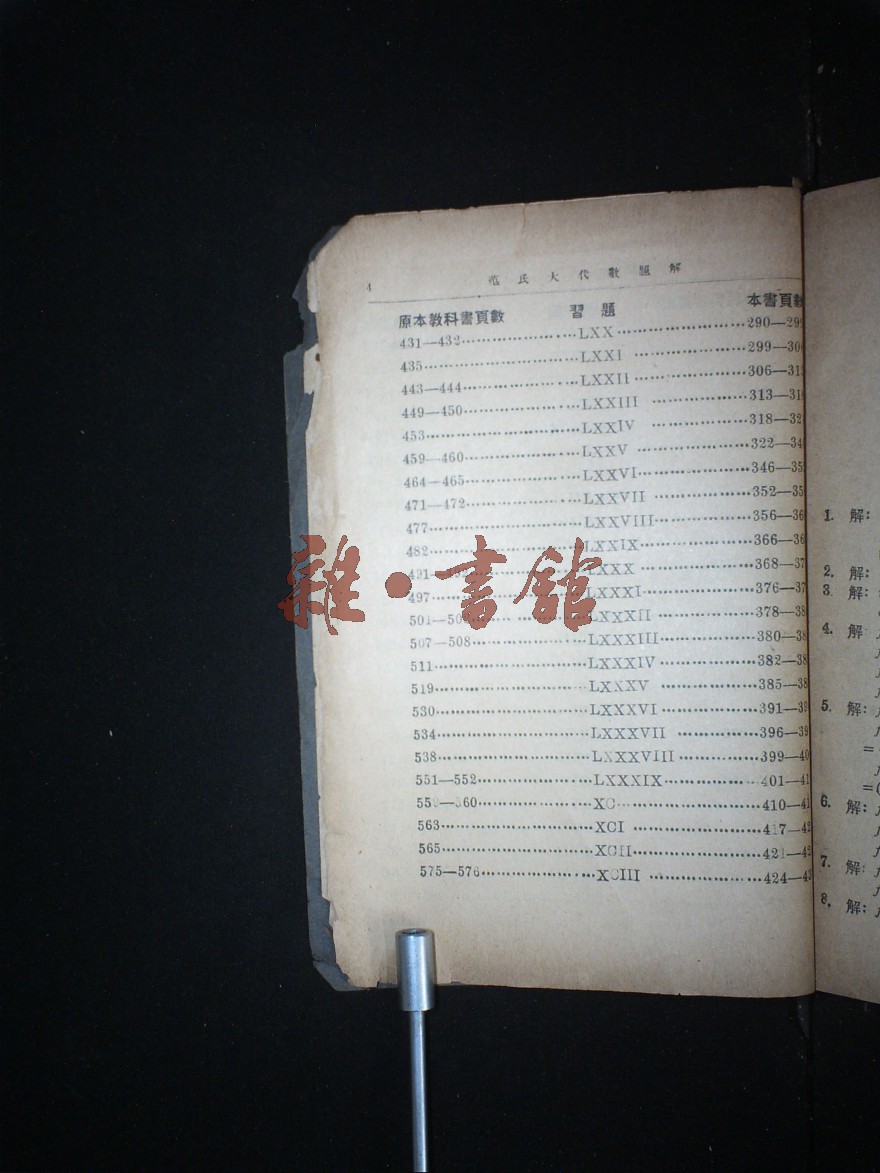 4 范氏大代數題解
原本教科書頁數 習題 本書頁數
431—432 LXX 290—29
435 LXXI 299—30
443—444 LXXII 306—31
449—450 LXXIII 313—31
453 LXXIV 318—32
459—460 LXXV 322—34
464—465 LXXVI 346—35
471—472 LXXVII 352—35
477 LXXVIII 356—36
482 LXXIX 366—36
LXXX 368—37
497 LXXXI 376—37
LXXXII 378—38
507—508 LXXXIII 380—38
511 LXXXIV 382—38
519 LXXXV 385—38
530 LXXXVI 391—39
534 LXXXVII 396—39
538 LXXXVIII 399—40
551—552 LXXXIX 401—41
XC 410—41
563 XCI 417—42
565 XCII 421—42
575—576 XCIII 424—43
雜·書館
1. 解:
2. 解:
3 解:
4. 解
5. 解:
=
=(
6. 解:
7. 解:
8. 解: